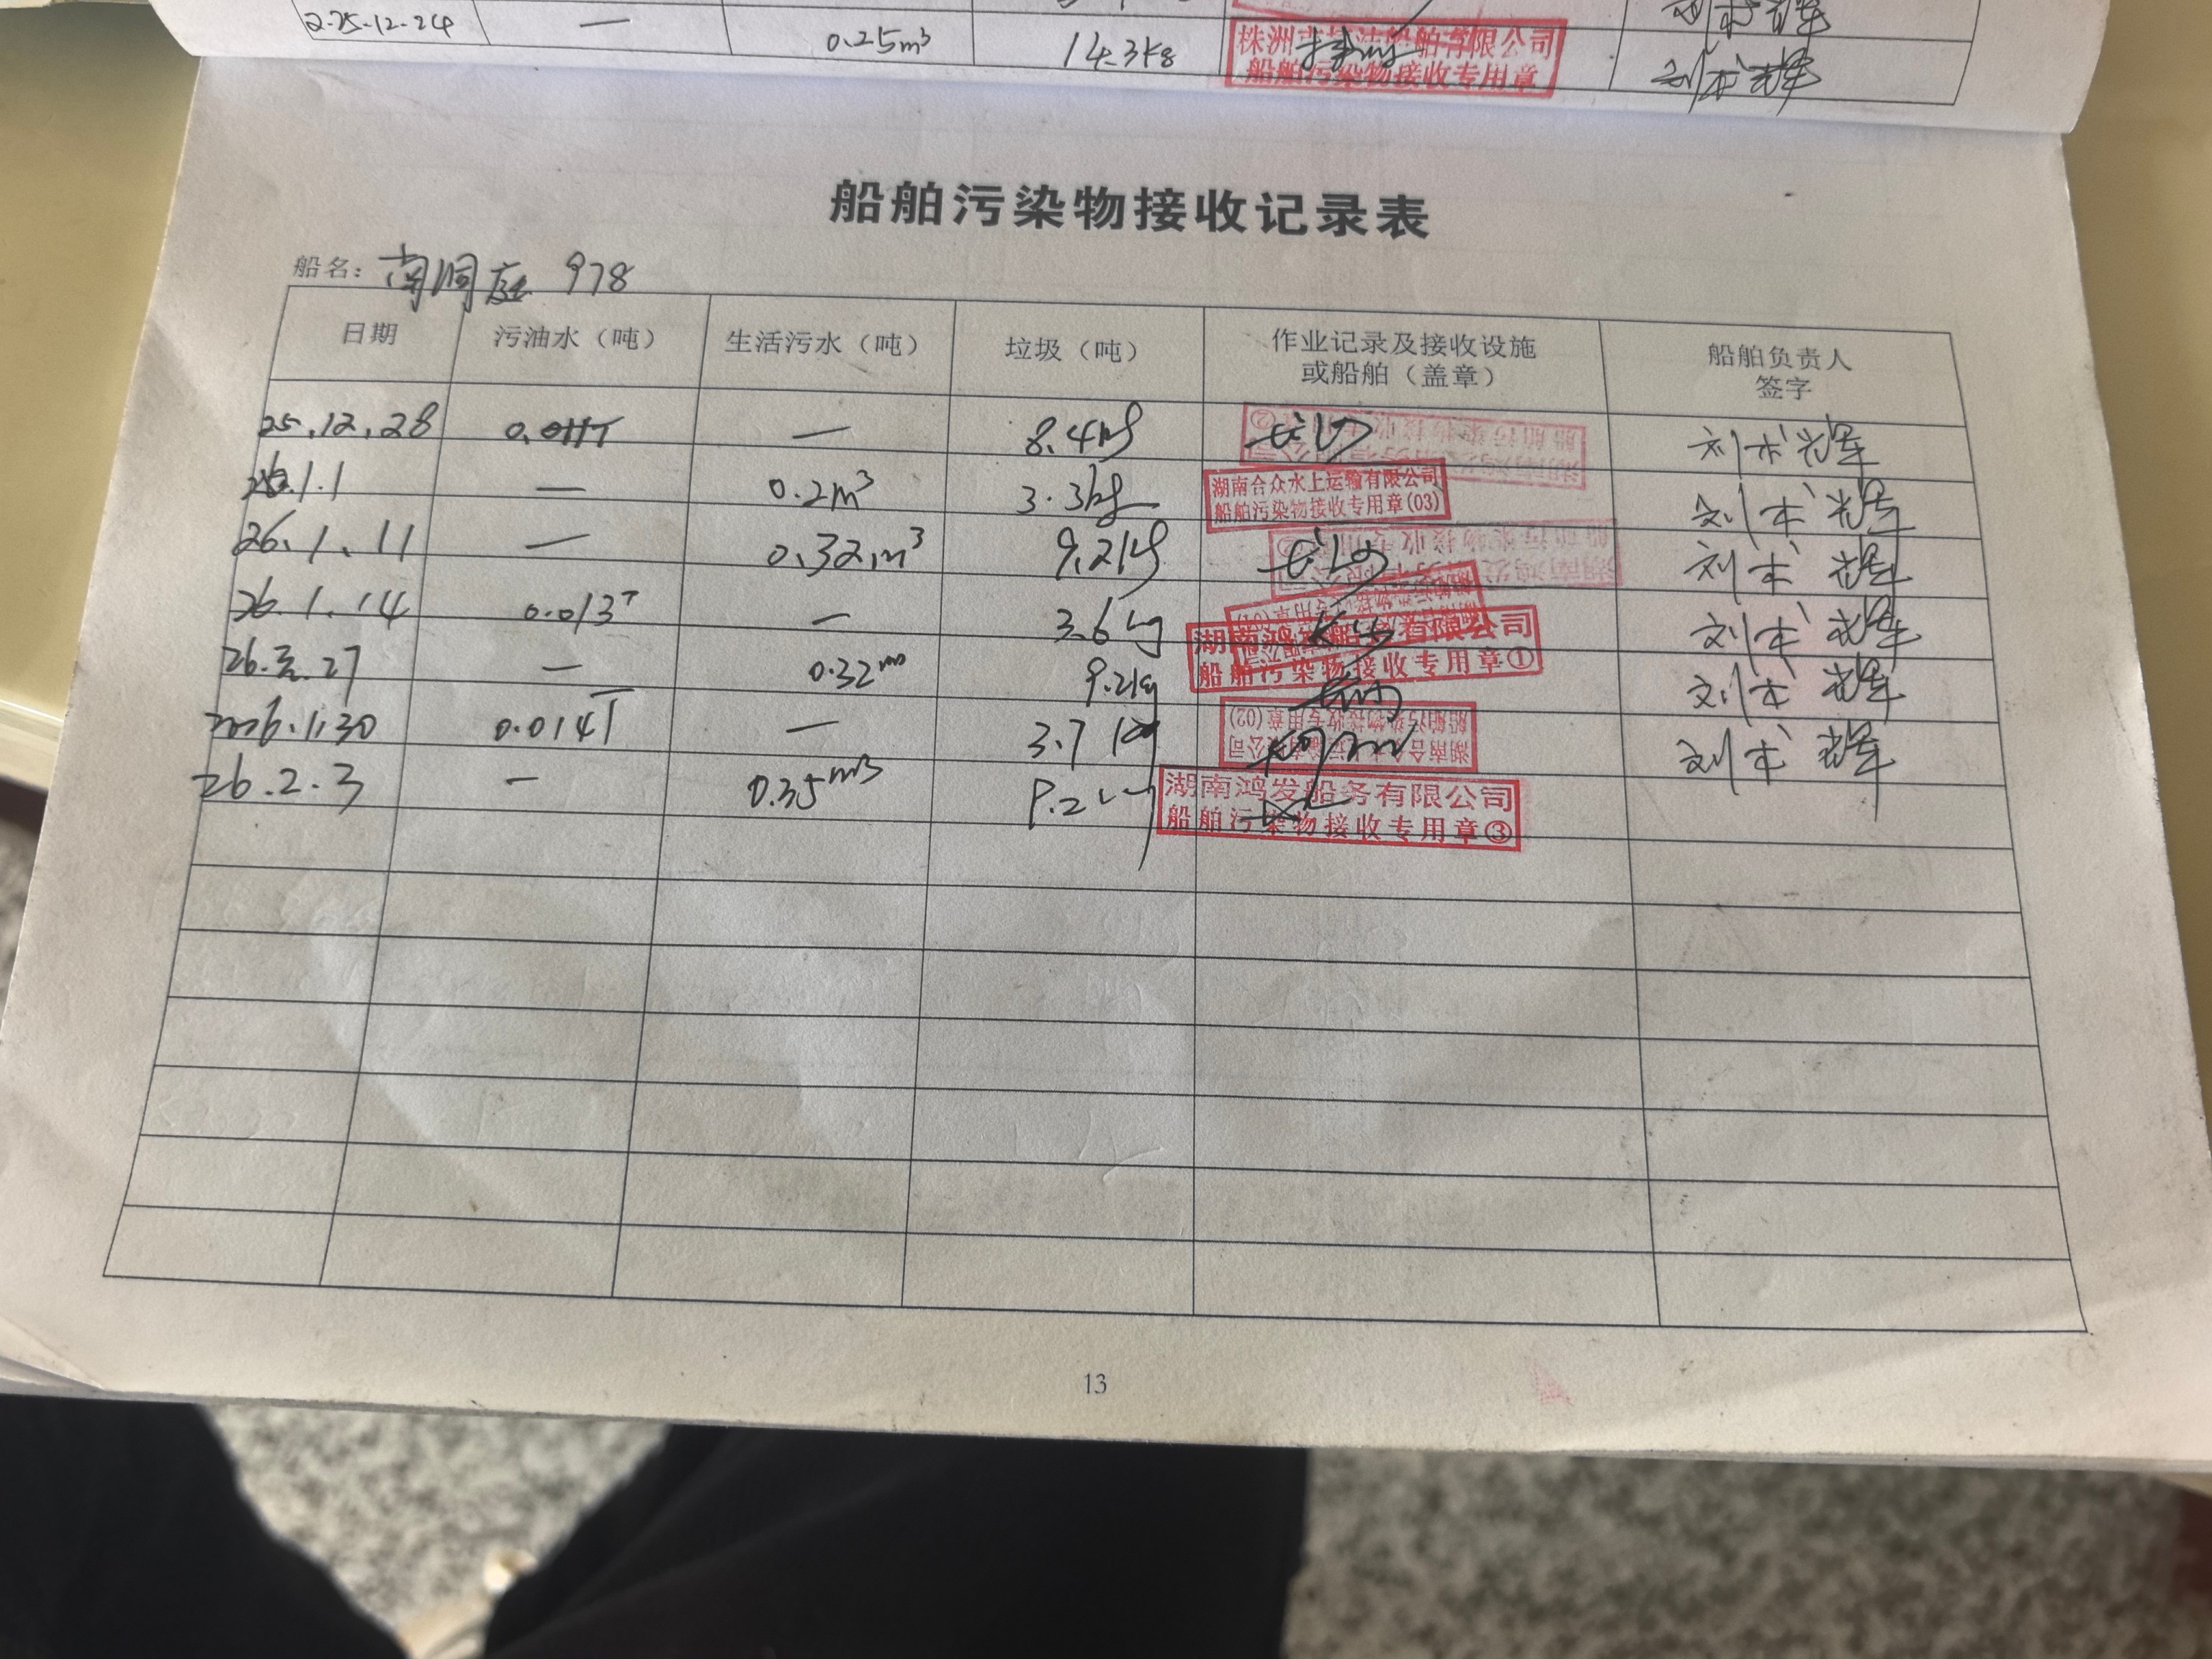 2-25-12-24 — 0.25m³ 14.3kg 船舶污染物接收专用章 刘本辉
船舶污染物接收记录表
船名: 南洞庭 978
日期 污油水（吨） 生活污水（吨） 垃圾（吨） 作业记录及接收设施或船舶（盖章） 船舶负责人签字
25.12.28 — 8.4kg 长沙 刘本辉
26.1.1 — 0.2m³ 3.3kg 湖南合众水上运输有限公司 船舶污染物接收专用章(03) 刘本辉
26.1.11 — 0.32m³ 9.2kg 长沙 刘本辉
26.1.14 0.013T — 3.6kg 长沙 刘本辉
湖南鸿发船务有限公司
船舶污染物接收专用章①
27 — 0.32m³ 9.2kg 刘本辉
2026.1.30 0.014T — 3.7kg 刘本辉
26.2.3 — 0.35m3 9.2kg
湖南鸿发船务有限公司
船舶污染物接收专用章③
13